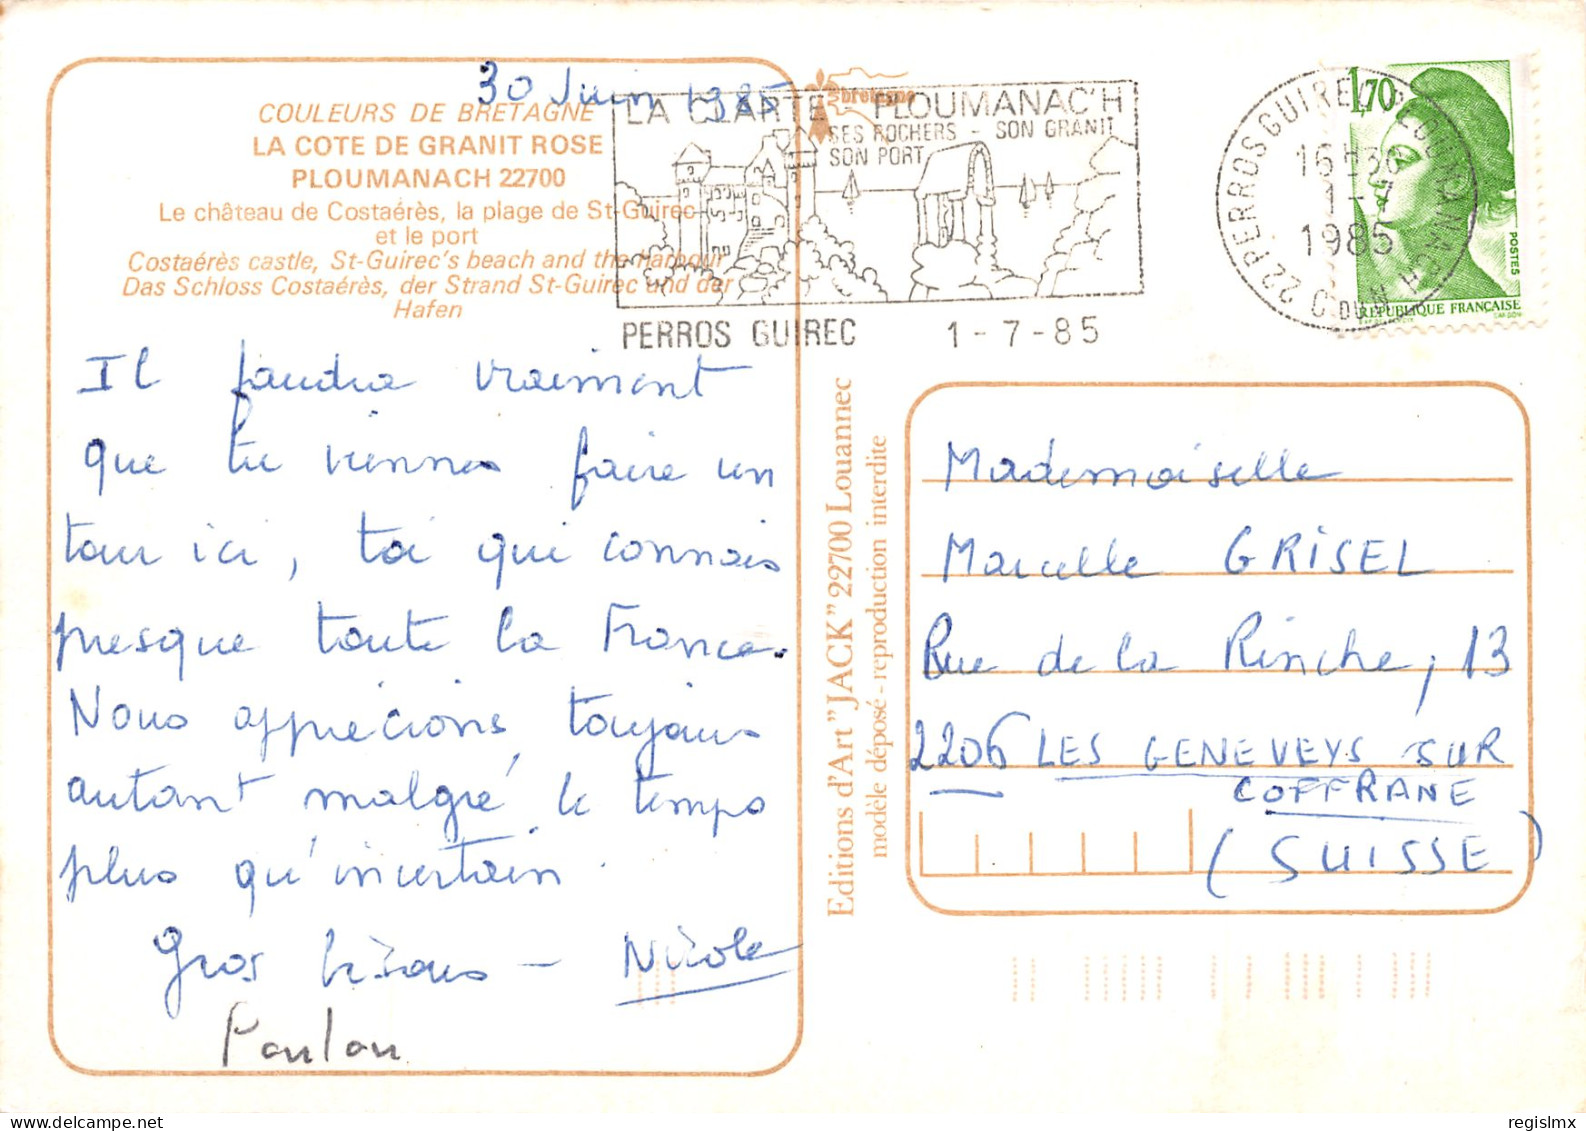 30 Juin 1985
COULEURS DE BRETAGNE
LA COTE DE GRANIT ROSE
PLOUMANACH 22700
Le château de Costaérès, la plage de St-Guirec
et le port
Costaérès castle, St-Guirec's beach and the harbour
Das Schloss Costaérès, der Strand St-Guirec und der
Hafen
bretagne
LA CLARTE - PLOUMANAC'H
SES ROCHERS - SON GRANIT
SON PORT
PERROS GUIREC 1-7-85
22 PERROS GUIREC PLOUMANACH
16H30
1-7
1985
C. DU N.
1,70
POSTES
REPUBLIQUE FRANÇAISE
Il faudra vraiment
que tu viennes faire un
tour ici, toi qui connais
presque toute la France.
Nous apprécions toujours
autant malgré le temps
plus qu'incertain.
Gros bisous - Nicole
Poulou
Editions d'Art "JACK" 22700 Louannec
modèle déposé - reproduction interdite
Mademoiselle
Marcelle GRISEL
Rue de la Rinche, 13
2206 LES GENEVEYS SUR
COFFRANE
(SUISSE)
regislmx